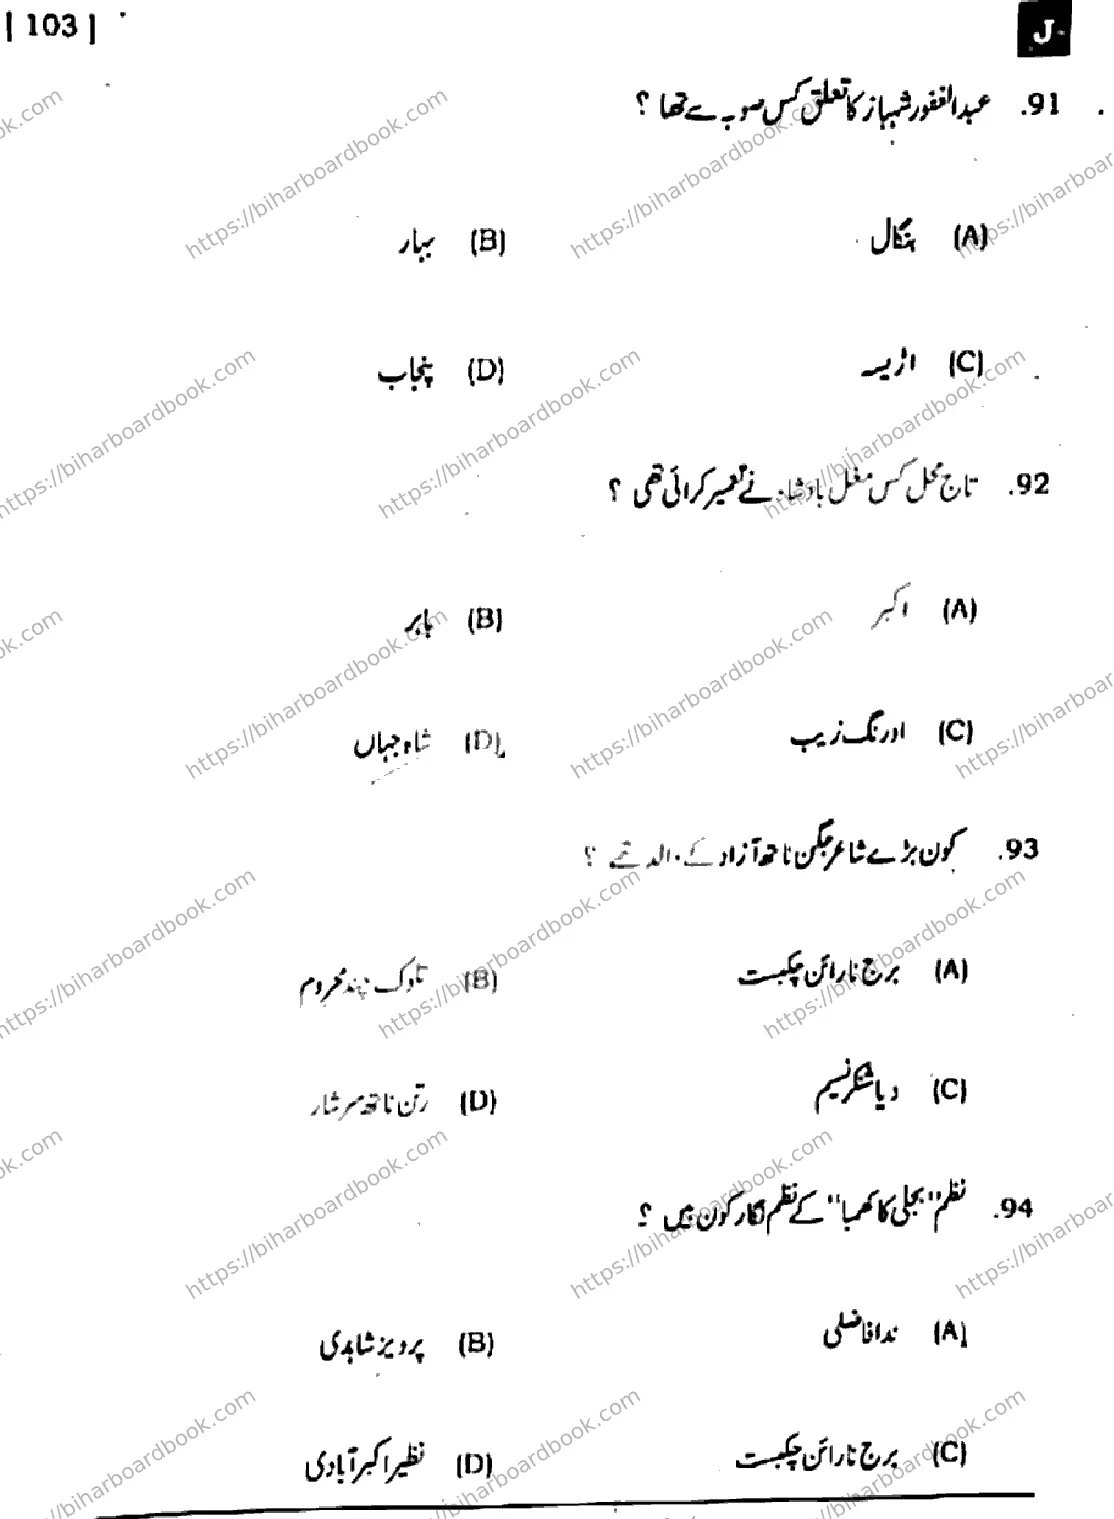 | 103 |
J-
91. عبدالغفور شہباز کا تعلق کس صوبہ سے تھا ؟
(A) بنگال (B) بہار
(C) اڑیسہ (D) پنجاب
92. تاج محل کس مغل بادشاہ نے تعمیر کرائی تھی ؟
(A) اکبر (B) بابر
(C) اورنگ زیب (D) شاہ جہاں
93. کون بڑے شاعر جگن ناتھ آزاد کے والد تھے ؟
(A) برج نارائن چکبست (B) تلوک چند محروم
(C) دیا شنکر نسیم (D) رتن ناتھ سرشار
94. نظم "بجلی کا کھمبا" کے نظم نگار کون ہیں ؟
(A) ندا فاضلی (B) پرویز شاہدی
(C) برج نارائن چکبست (D) نظیر اکبر آبادی
https://biharboardbook.com